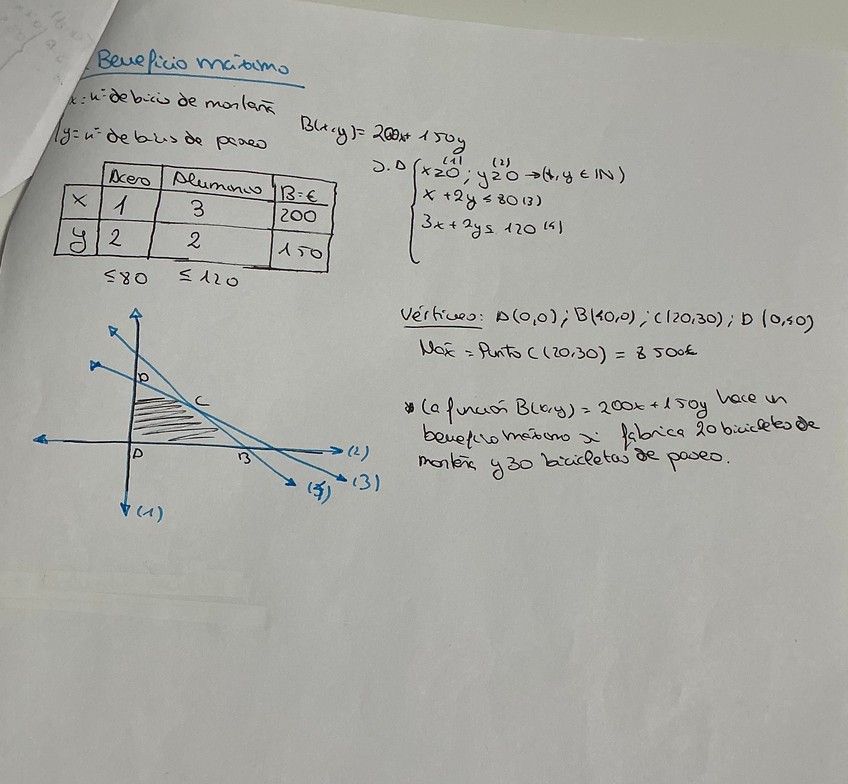 Beneficio máximo
x: nº de bicis de montaña
y= nº de bicis de paseo
B(x,y)= 200x+ 150y
Acero Aluminio B=€
x 1 3 200
y 2 2 150
≤80 ≤120
S.A { x≥0 (1) ; y≥0 (2) → (x,y ∈ IN)
x +2y ≤ 80 (3)
3x + 2y ≤ 120 (4)
Vértices: A(0,0); B(40,0); C(20,30); D (0,40)
Máx = Punto C (20,30) = 8 500€
* La función B(x,y) = 200x+150y hace un
beneficio máximo si fabrica 20 bicicletas de
montaña y 30 bicicletas de paseo.
D
C
A
B
(2)
(4)
(3)
(1)